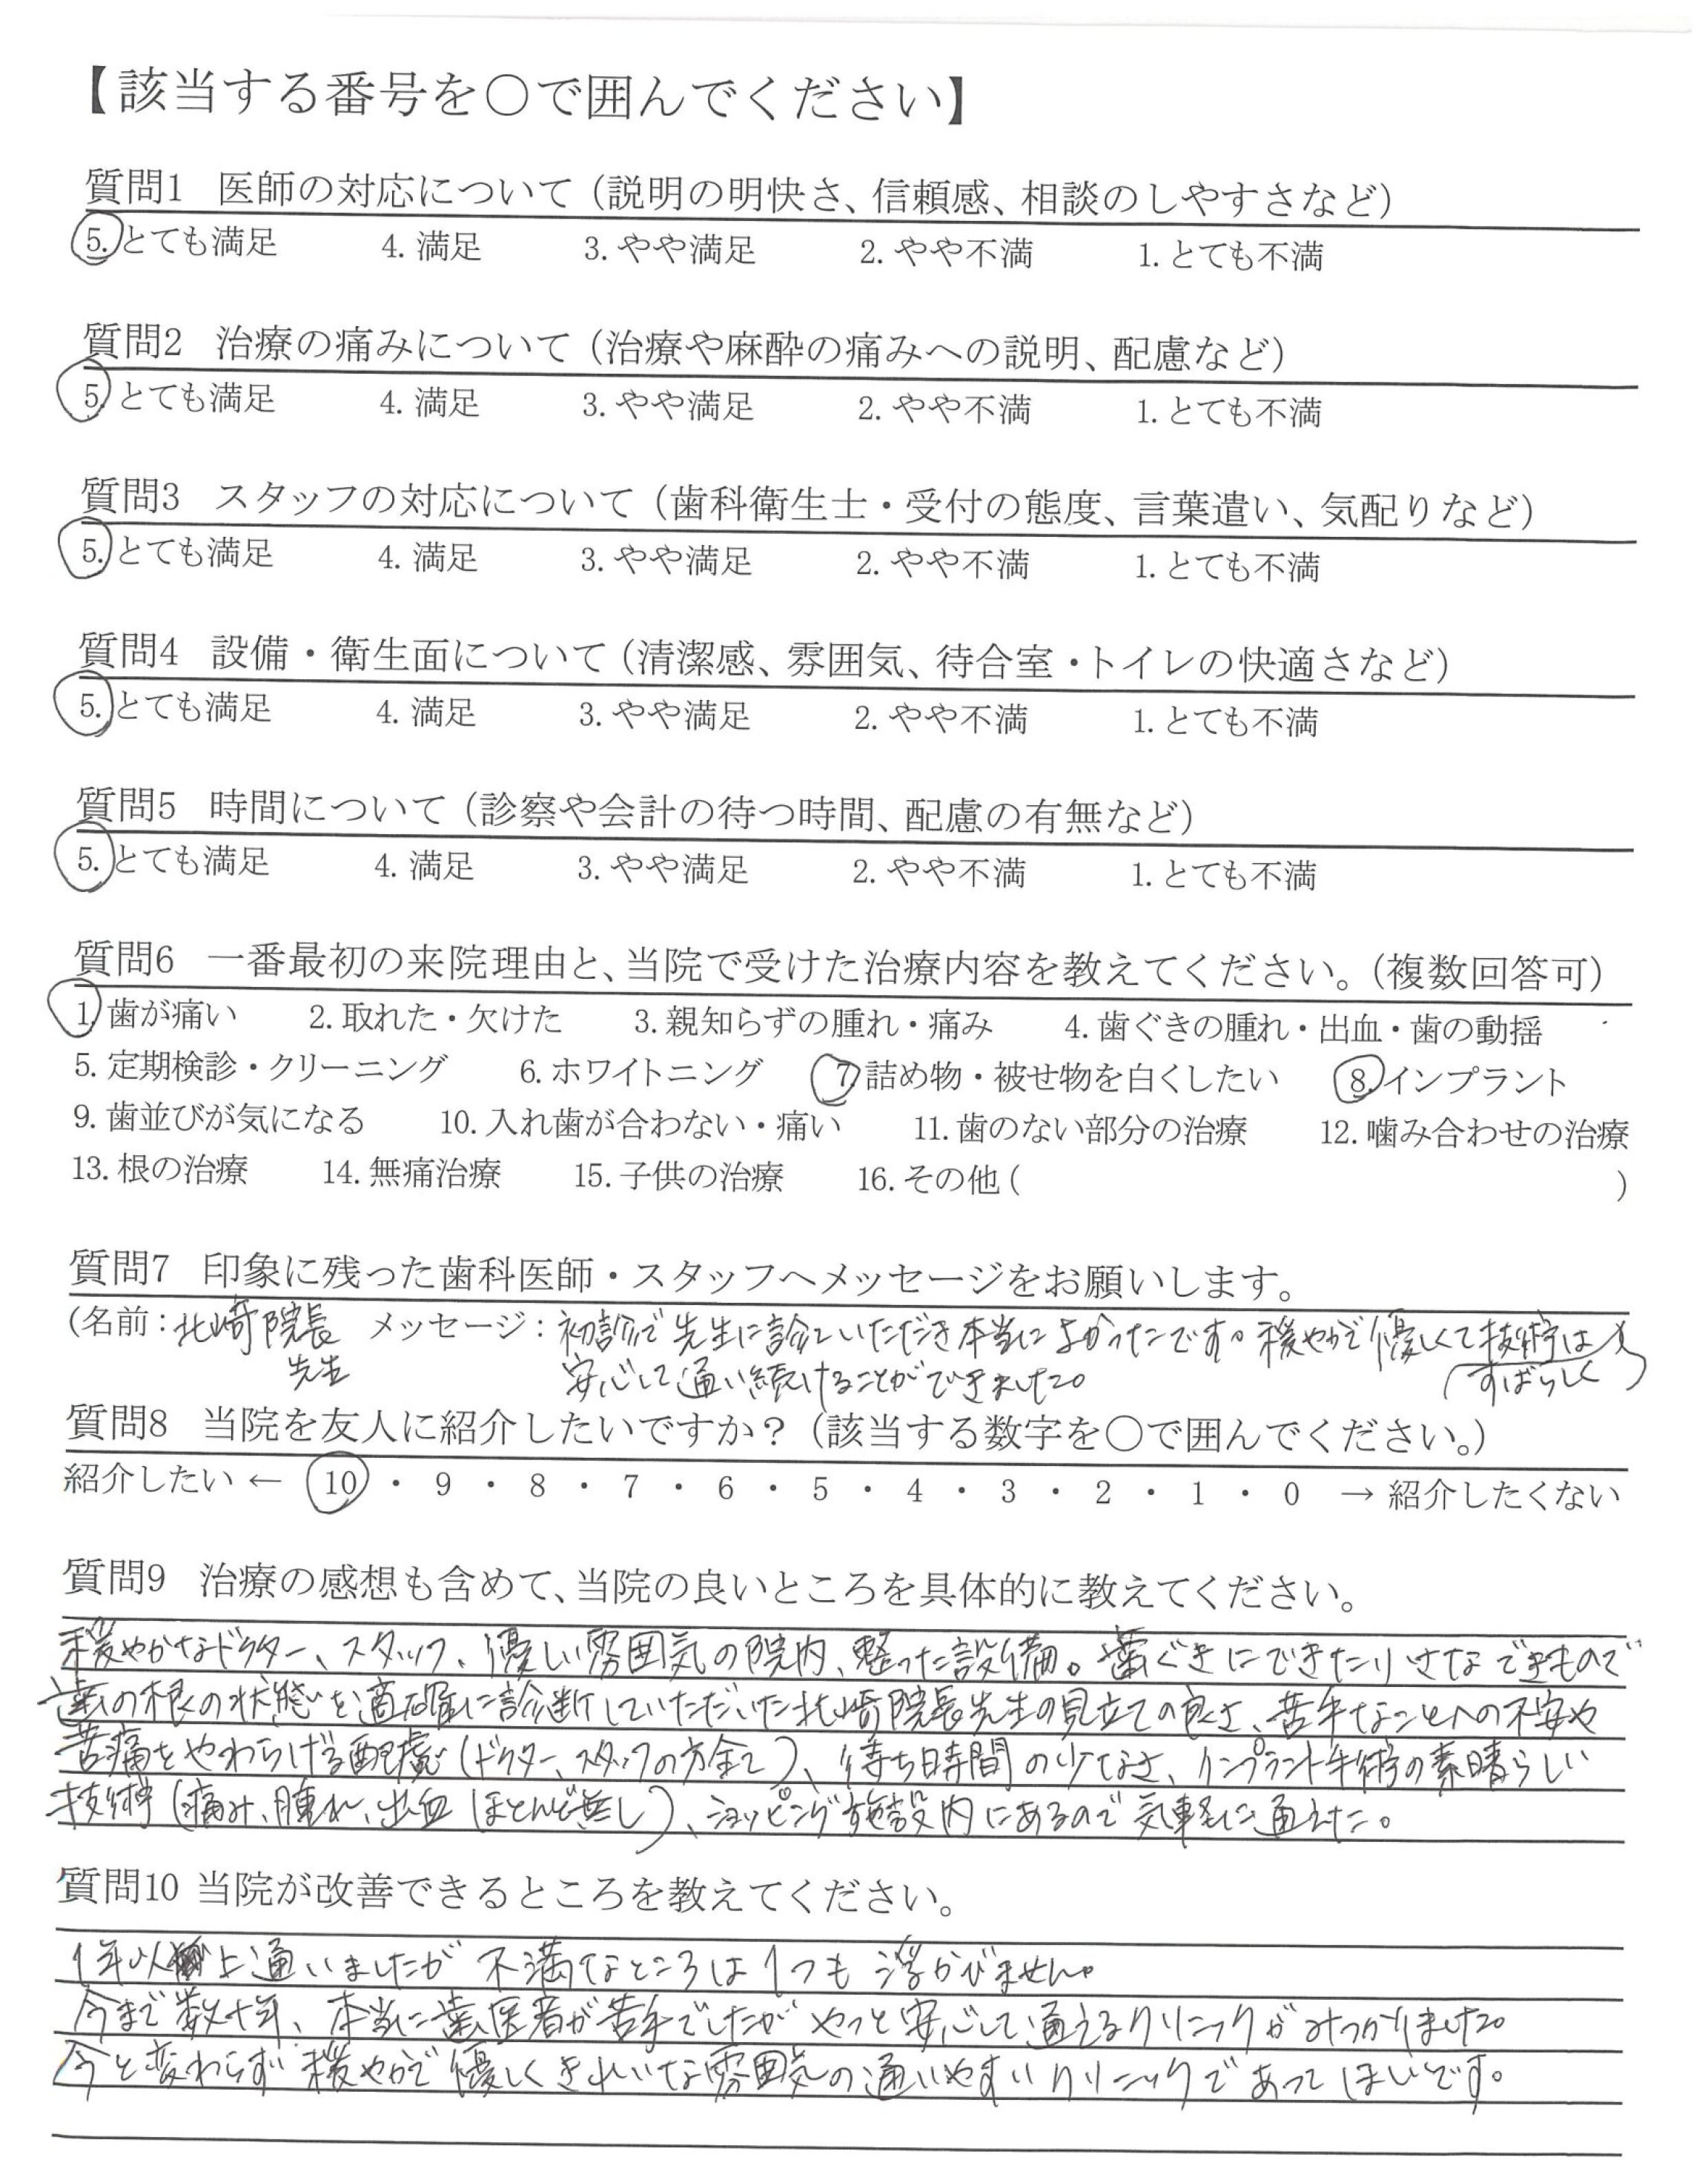 【該当する番号を○で囲んでください】
質問1 医師の対応について（説明の明快さ、信頼感、相談のしやすさなど）
5.とても満足 4.満足 3.やや満足 2.やや不満 1.とても不満
質問2 治療の痛みについて（治療や麻酔の痛みへの説明、配慮など）
5.とても満足 4.満足 3.やや満足 2.やや不満 1.とても不満
質問3 スタッフの対応について（歯科衛生士・受付の態度、言葉遣い、気配りなど）
5.とても満足 4.満足 3.やや満足 2.やや不満 1.とても不満
質問4 設備・衛生面について（清潔感、雰囲気、待合室・トイレの快適さなど）
5.とても満足 4.満足 3.やや満足 2.やや不満 1.とても不満
質問5 時間について（診察や会計の待つ時間、配慮の有無など）
5.とても満足 4.満足 3.やや満足 2.やや不満 1.とても不満
質問6 一番最初の来院理由と、当院で受けた治療内容を教えてください。（複数回答可）
1.歯が痛い 2.取れた・欠けた 3.親知らずの腫れ・痛み 4.歯ぐきの腫れ・出血・歯の動揺
5.定期検診・クリーニング 6.ホワイトニング 7.詰め物・被せ物を白くしたい 8.インプラント
9.歯並びが気になる 10.入れ歯が合わない・痛い 11.歯のない部分の治療 12.噛み合わせの治療
13.根の治療 14.無痛治療 15.子供の治療 16.その他（ ）
質問7 印象に残った歯科医師・スタッフへメッセージをお願いします。
（名前：北崎院長 メッセージ：初診で先生に診ていただき本当によかったです。穏やかで優しくて技術は
先生 安心して通い続けることができました。 すばらしく）
質問8 当院を友人に紹介したいですか？（該当する数字を○で囲んでください。）
紹介したい ← 10 ・ 9 ・ 8 ・ 7 ・ 6 ・ 5 ・ 4 ・ 3 ・ 2 ・ 1 ・ 0 → 紹介したくない
質問9 治療の感想も含めて、当院の良いところを具体的に教えてください。
穏やかなドクター、スタッフ、優しい雰囲気の院内、整った設備。歯ぐきにできた小さなできもので
歯の根の状態を適確に診断していただいた北崎院長先生の見立ての良さ、苦手なことへの不安や
苦痛をやわらげる配慮（ドクター、スタッフの方全て）、待ち時間の少なさ、インプラント手術の素晴らしい
技術（痛み、腫れ、出血ほとんど無し）、ショッピング施設内にあるので気軽に通えた。
質問10 当院が改善できるところを教えてください。
1年以上通いましたが不満なところは1つも浮かびません。
今まで数十年、本当に歯医者が苦手でしたがやっと安心して通えるクリニックがみつかりました。
今と変わらず穏やかで優しくきれいな雰囲気の通いやすいクリニックであってほしいです。